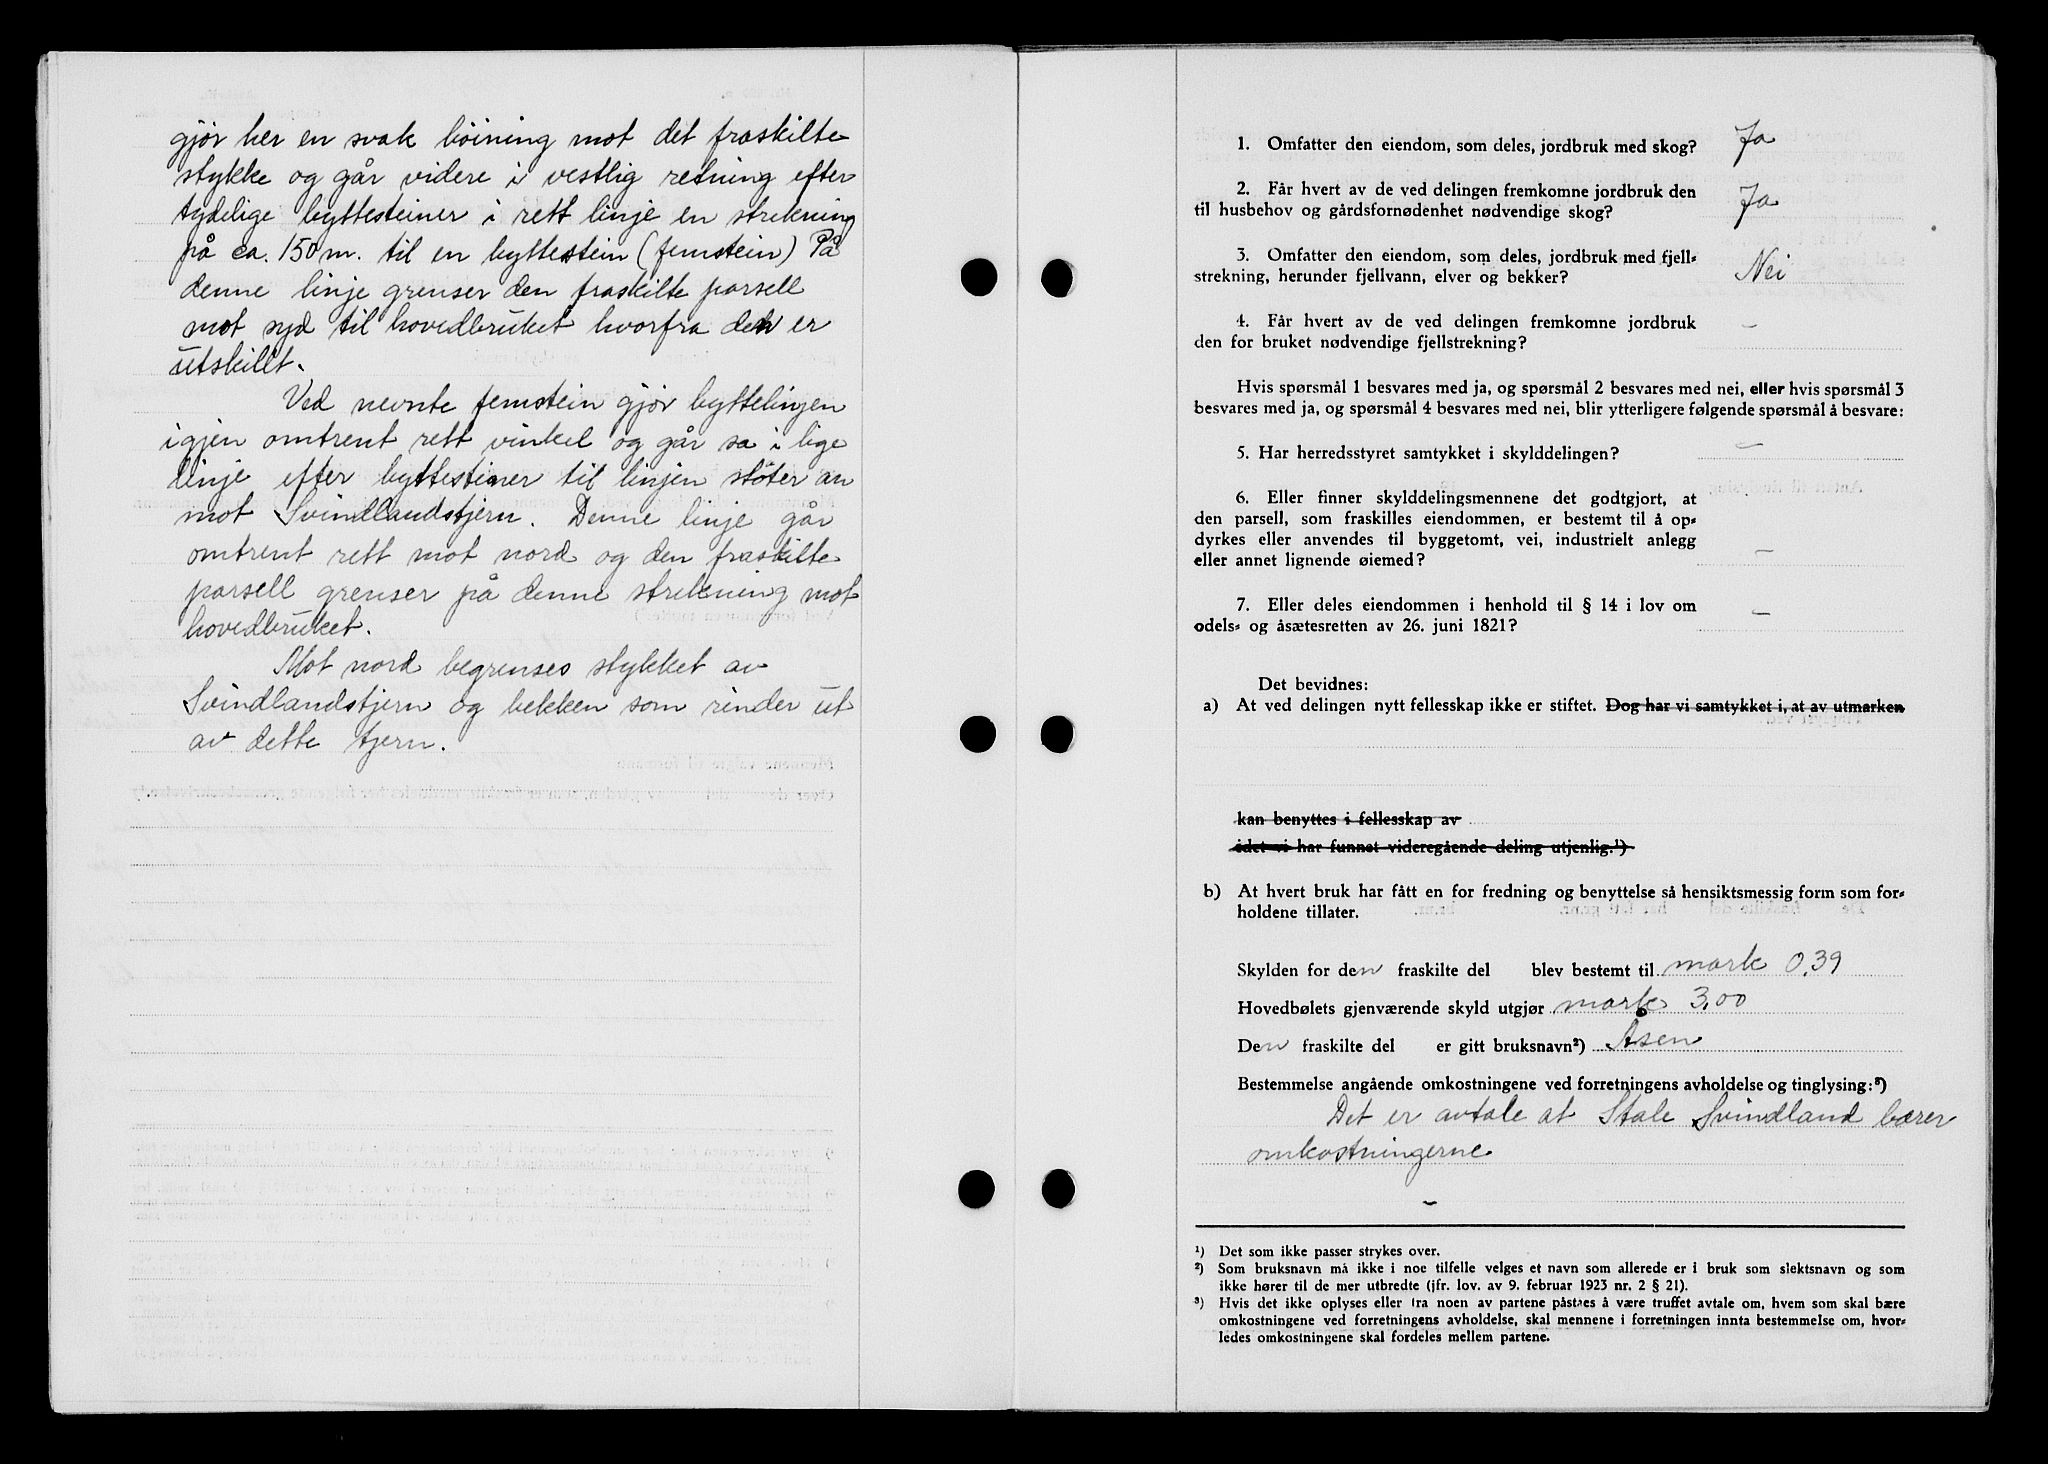 gjør her en svak böining mot det fraskilte
stykke og går videre i vestlig retning efter
tydelige byttesteiner i rett linje en strekning
på ca. 150 m. til en byttestein (femstein) På
denne linje grenser den fraskilte parsell
mot syd til hovedbruket hvorfra den er
utskillt.
Ved nevnte femstein gjör byttelinjen
igjen omtrent rett vinkel og går sa i lige
linje efter byttestiner til linjen stöter an
mot Svindlandstjern. Denne linje går
omtrent rett mot nord og den fraskilte
parsell grenser på denne strekning mot
hovedbruket.
Mot nord begrenses stykket av
Svindlandstjern og bekken som rinder ut
av dette tjern.
1. Omfatter den eiendom, som deles, jordbruk med skog? Ja
2. Får hvert av de ved delingen fremkomne jordbruk den
til husbehov og gårdsfornødenhet nødvendige skog? Ja
3. Omfatter den eiendom, som deles, jordbruk med fjell-
strekning, herunder fjellvann, elver og bekker? Nei
4. Får hvert av de ved delingen fremkomne jordbruk –
den for bruket nødvendige fjellstrekning?
Hvis spørsmål 1 besvares med ja, og spørsmål 2 besvares med nei, eller hvis spørsmål 3
besvares med ja, og spørsmål 4 besvares med nei, blir ytterligere følgende spørsmål å besvare:
5. Har herredsstyret samtykket i skylddelingen? –
6. Eller finner skylddelingsmennene det godtgjort, at
den parsell, som fraskilles eiendommen, er bestemt til å op-
dyrkes eller anvendes til byggetomt, vei, industrielt anlegg
eller annet lignende øiemed? –
7. Eller deles eiendommen i henhold til § 14 i lov om –
odels- og åsætesretten av 26. juni 1821?
Det bevidnes:
a) At ved delingen nytt fellesskap ikke er stiftet. Dog har vi samtykket i, at av utmarken
kan benyttes i fellesskap av
idet vi har funnet videregående deling utjenlig.¹)
b) At hvert bruk har fått en for fredning og benyttelse så hensiktsmessig form som for-
holdene tillater.
Skylden for den fraskilte del blev bestemt til mark 0,39
Hovedbølets gjenværende skyld utgjør mark 3,00
Den fraskilte del er gitt bruksnavn²) Åsen
Bestemmelse angående omkostningene ved forretningens avholdelse og tinglysing:³)
Det er avtale at Stale Svindland bærer
omkostningerne
–
¹) Det som ikke passer strykes over.
²) Som bruksnavn må ikke i noe tilfelle velges et navn som allerede er i bruk som slektsnavn og som
ikke hører til de mer utbredte (jfr. lov. av 9. februar 1923 nr. 2 § 21).
³) Hvis det ikke oplyses eller fra noen av partene påstaes å være truffet avtale om, hvem som skal bære
omkostningene ved forretningens avholdelse, skal mennene i forretningen innta bestemmelse om, hvor-
ledes omkostningene skal fordeles mellem partene.